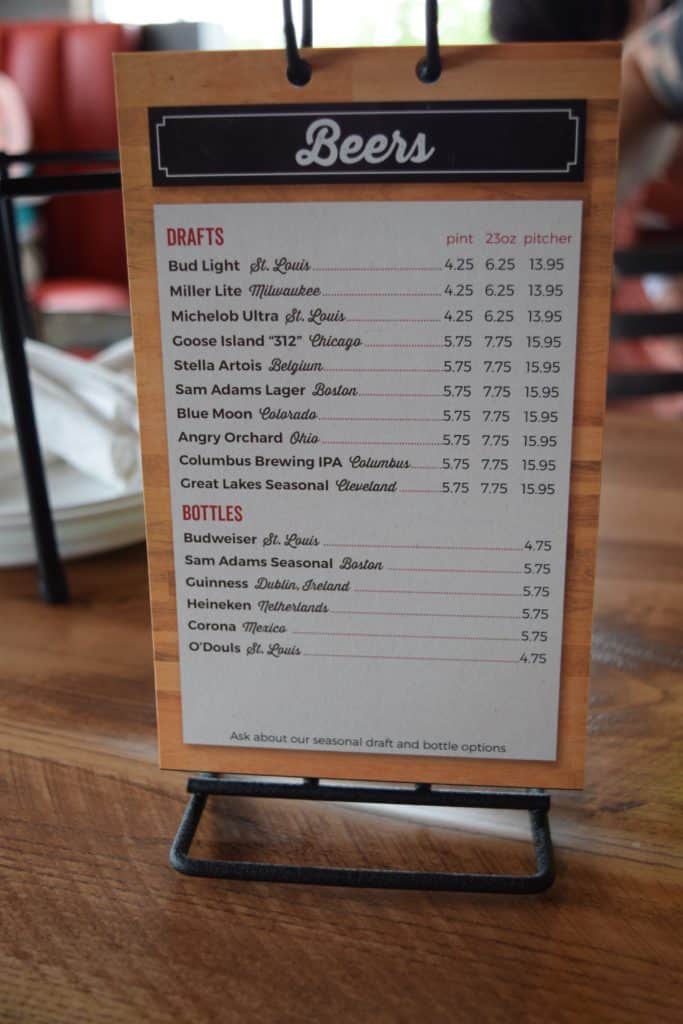 Beers
DRAFTS pint 23oz pitcher
Bud Light St. Louis 4.25 6.25 13.95
Miller Lite Milwaukee 4.25 6.25 13.95
Michelob Ultra St. Louis 4.25 6.25 13.95
Goose Island "312" Chicago 5.75 7.75 15.95
Stella Artois Belgium 5.75 7.75 15.95
Sam Adams Lager Boston 5.75 7.75 15.95
Blue Moon Colorado 5.75 7.75 15.95
Angry Orchard Ohio 5.75 7.75 15.95
Columbus Brewing IPA Columbus 5.75 7.75 15.95
Great Lakes Seasonal Cleveland 5.75 7.75 15.95
BOTTLES
Budweiser St. Louis 4.75
Sam Adams Seasonal Boston 5.75
Guinness Dublin, Ireland 5.75
Heineken Netherlands 5.75
Corona Mexico 5.75
O'Douls St. Louis 4.75
Ask about our seasonal draft and bottle options